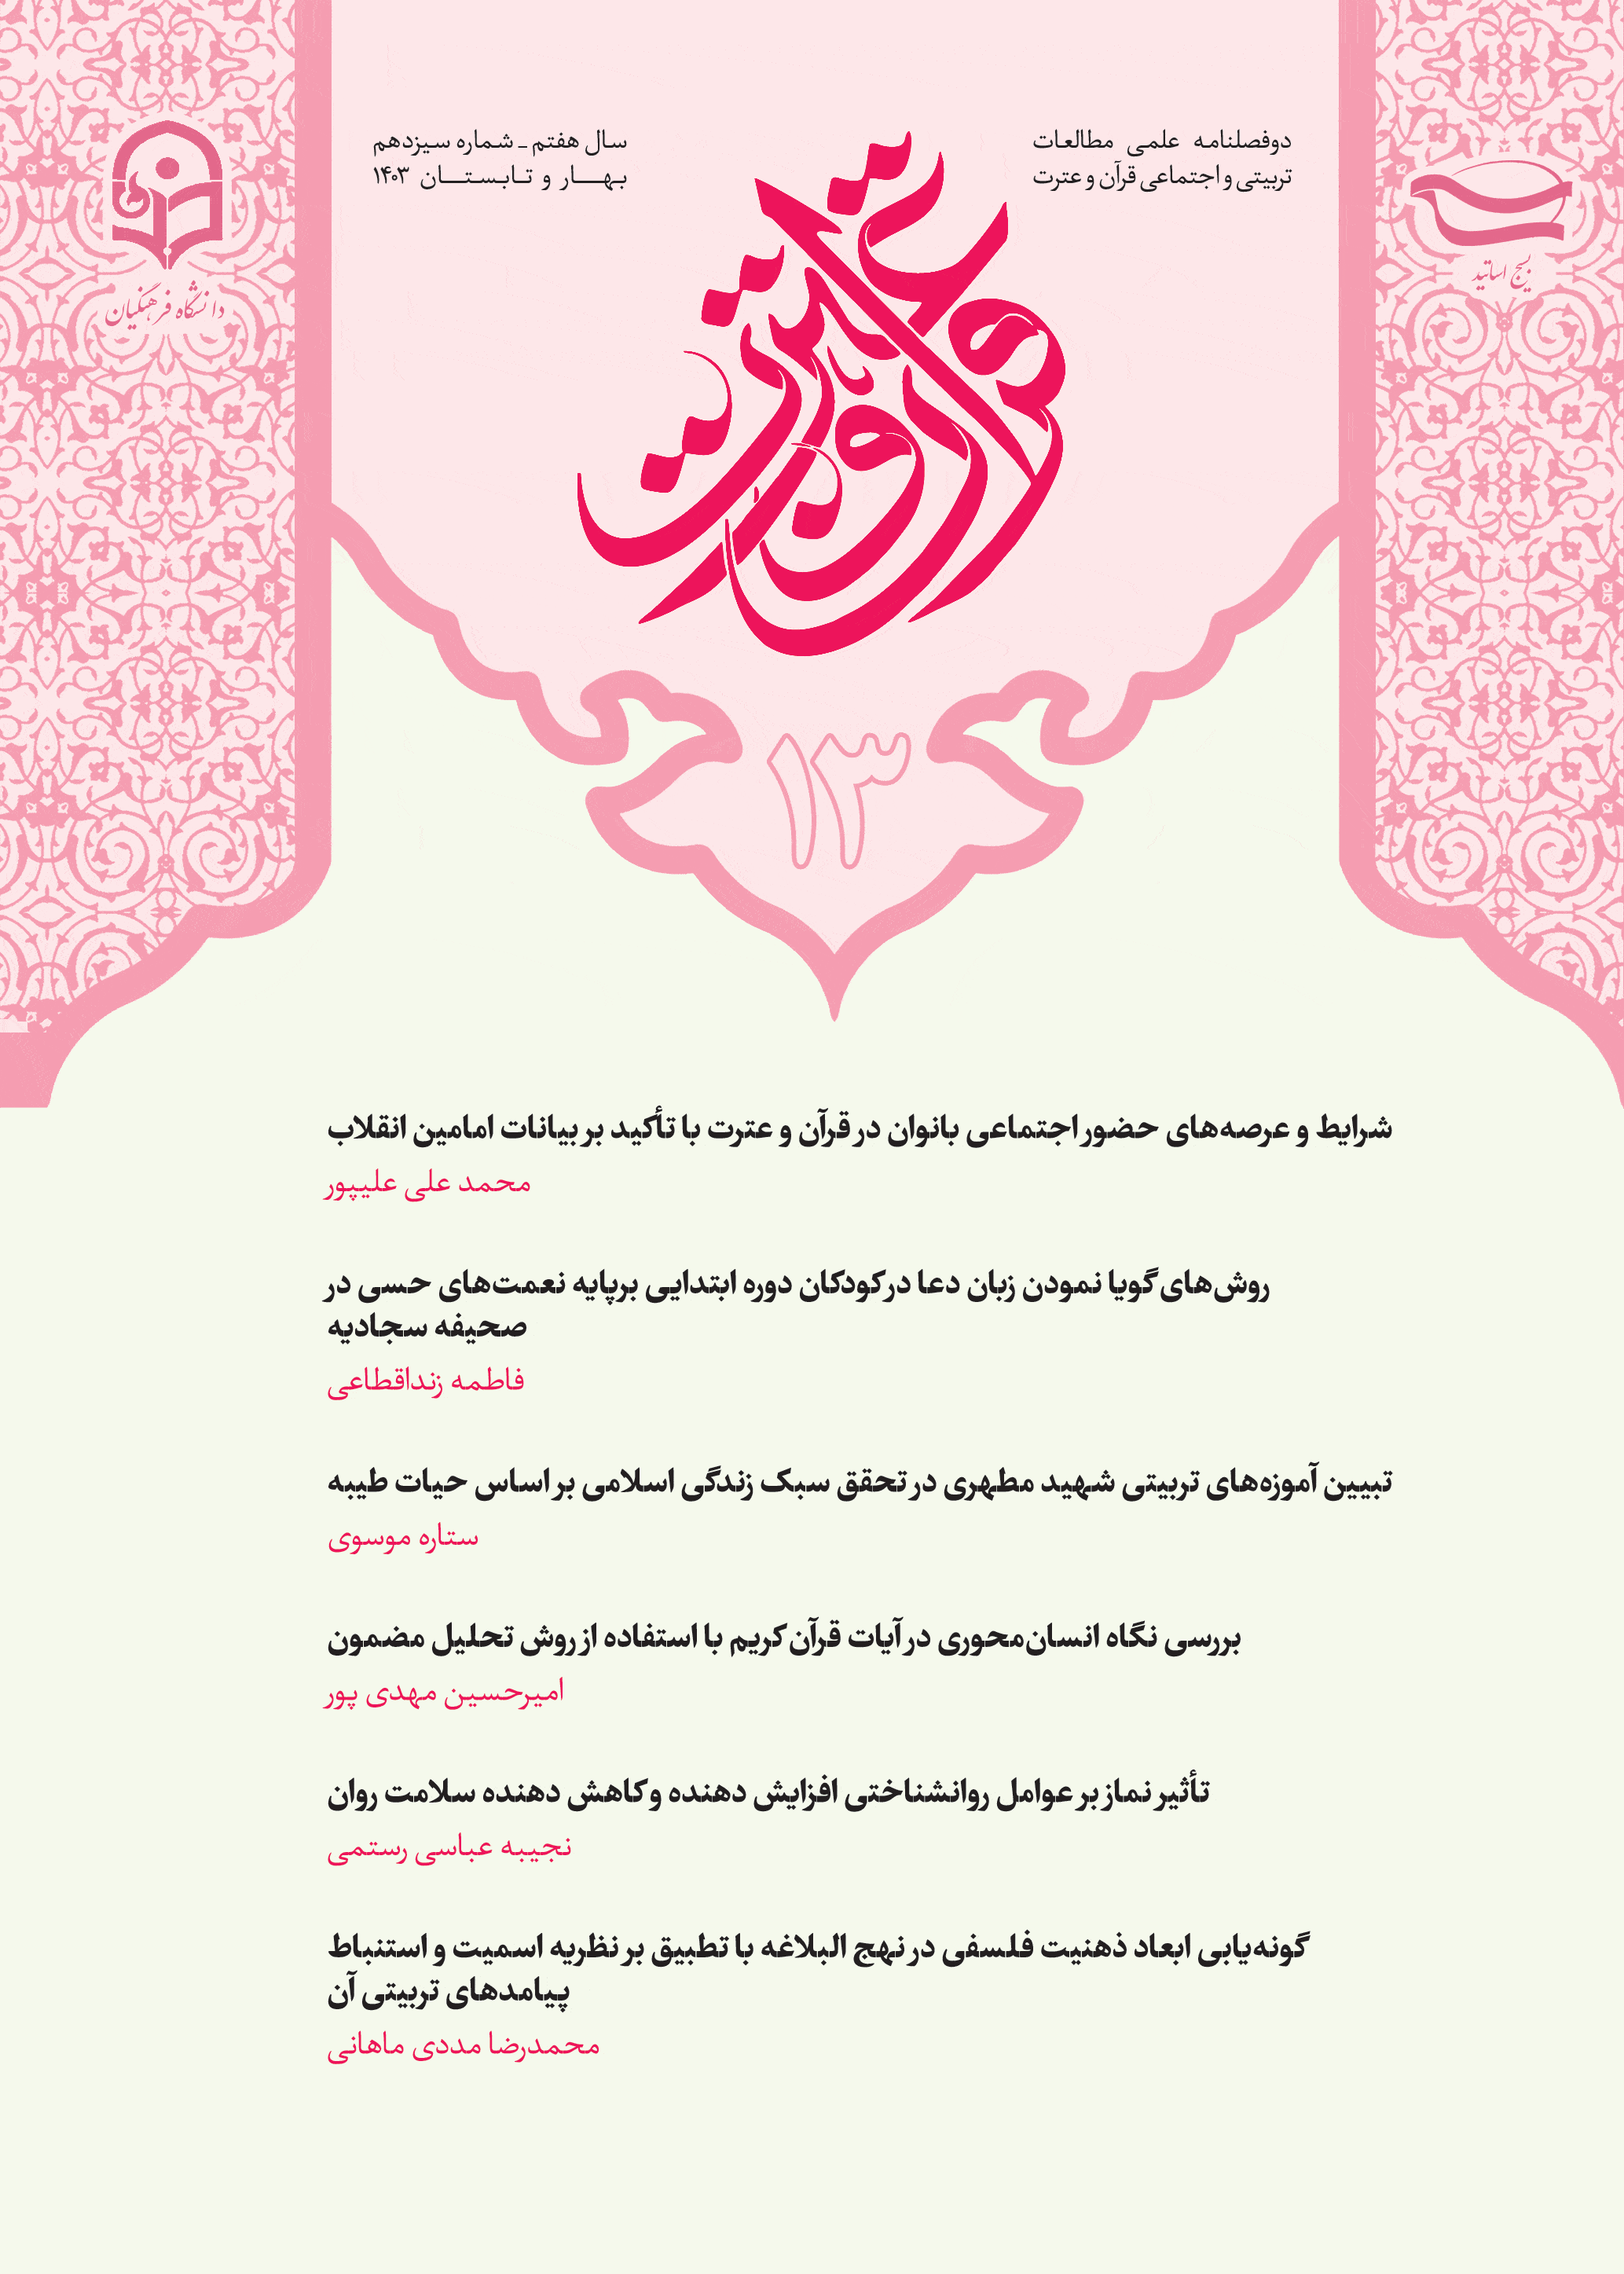 دوفصلنامه علمی مطالعات
تربیتی و اجتماعی قرآن و عترت
سال هفتم ـ شماره سیزدهم
بهـــار و تـابـستــــان ۱۴۰۳
بسیج اساتید
دانشگاه فرهنگیان
۱۳
شرایط و عرصه‌های حضور اجتماعی بانوان در قرآن و عترت با تأکید بر بیانات امامین انقلاب
محمد علی علیپور
روش‌های گویا نمودن زبان دعا در کودکان دوره ابتدایی برپایه نعمت‌های حسی در
صحیفه سجادیه
فاطمه زنداقطاعی
تبیین آموزه‌های تربیتی شهید مطهری در تحقق سبک زندگی اسلامی بر اساس حیات طیبه
ستاره موسوی
بررسی نگاه انسان‌محوری در آیات قرآن کریم با استفاده از روش تحلیل مضمون
امیرحسین مهدی پور
تأثیر نماز بر عوامل روانشناختی افزایش دهنده و کاهش دهنده سلامت روان
نجیبه عباسی رستمی
گونه‌یابی ابعاد ذهنیت فلسفی در نهج البلاغه با تطبیق بر نظریه اسمیت و استنباط
پیامدهای تربیتی آن
محمدرضا مددی ماهانی